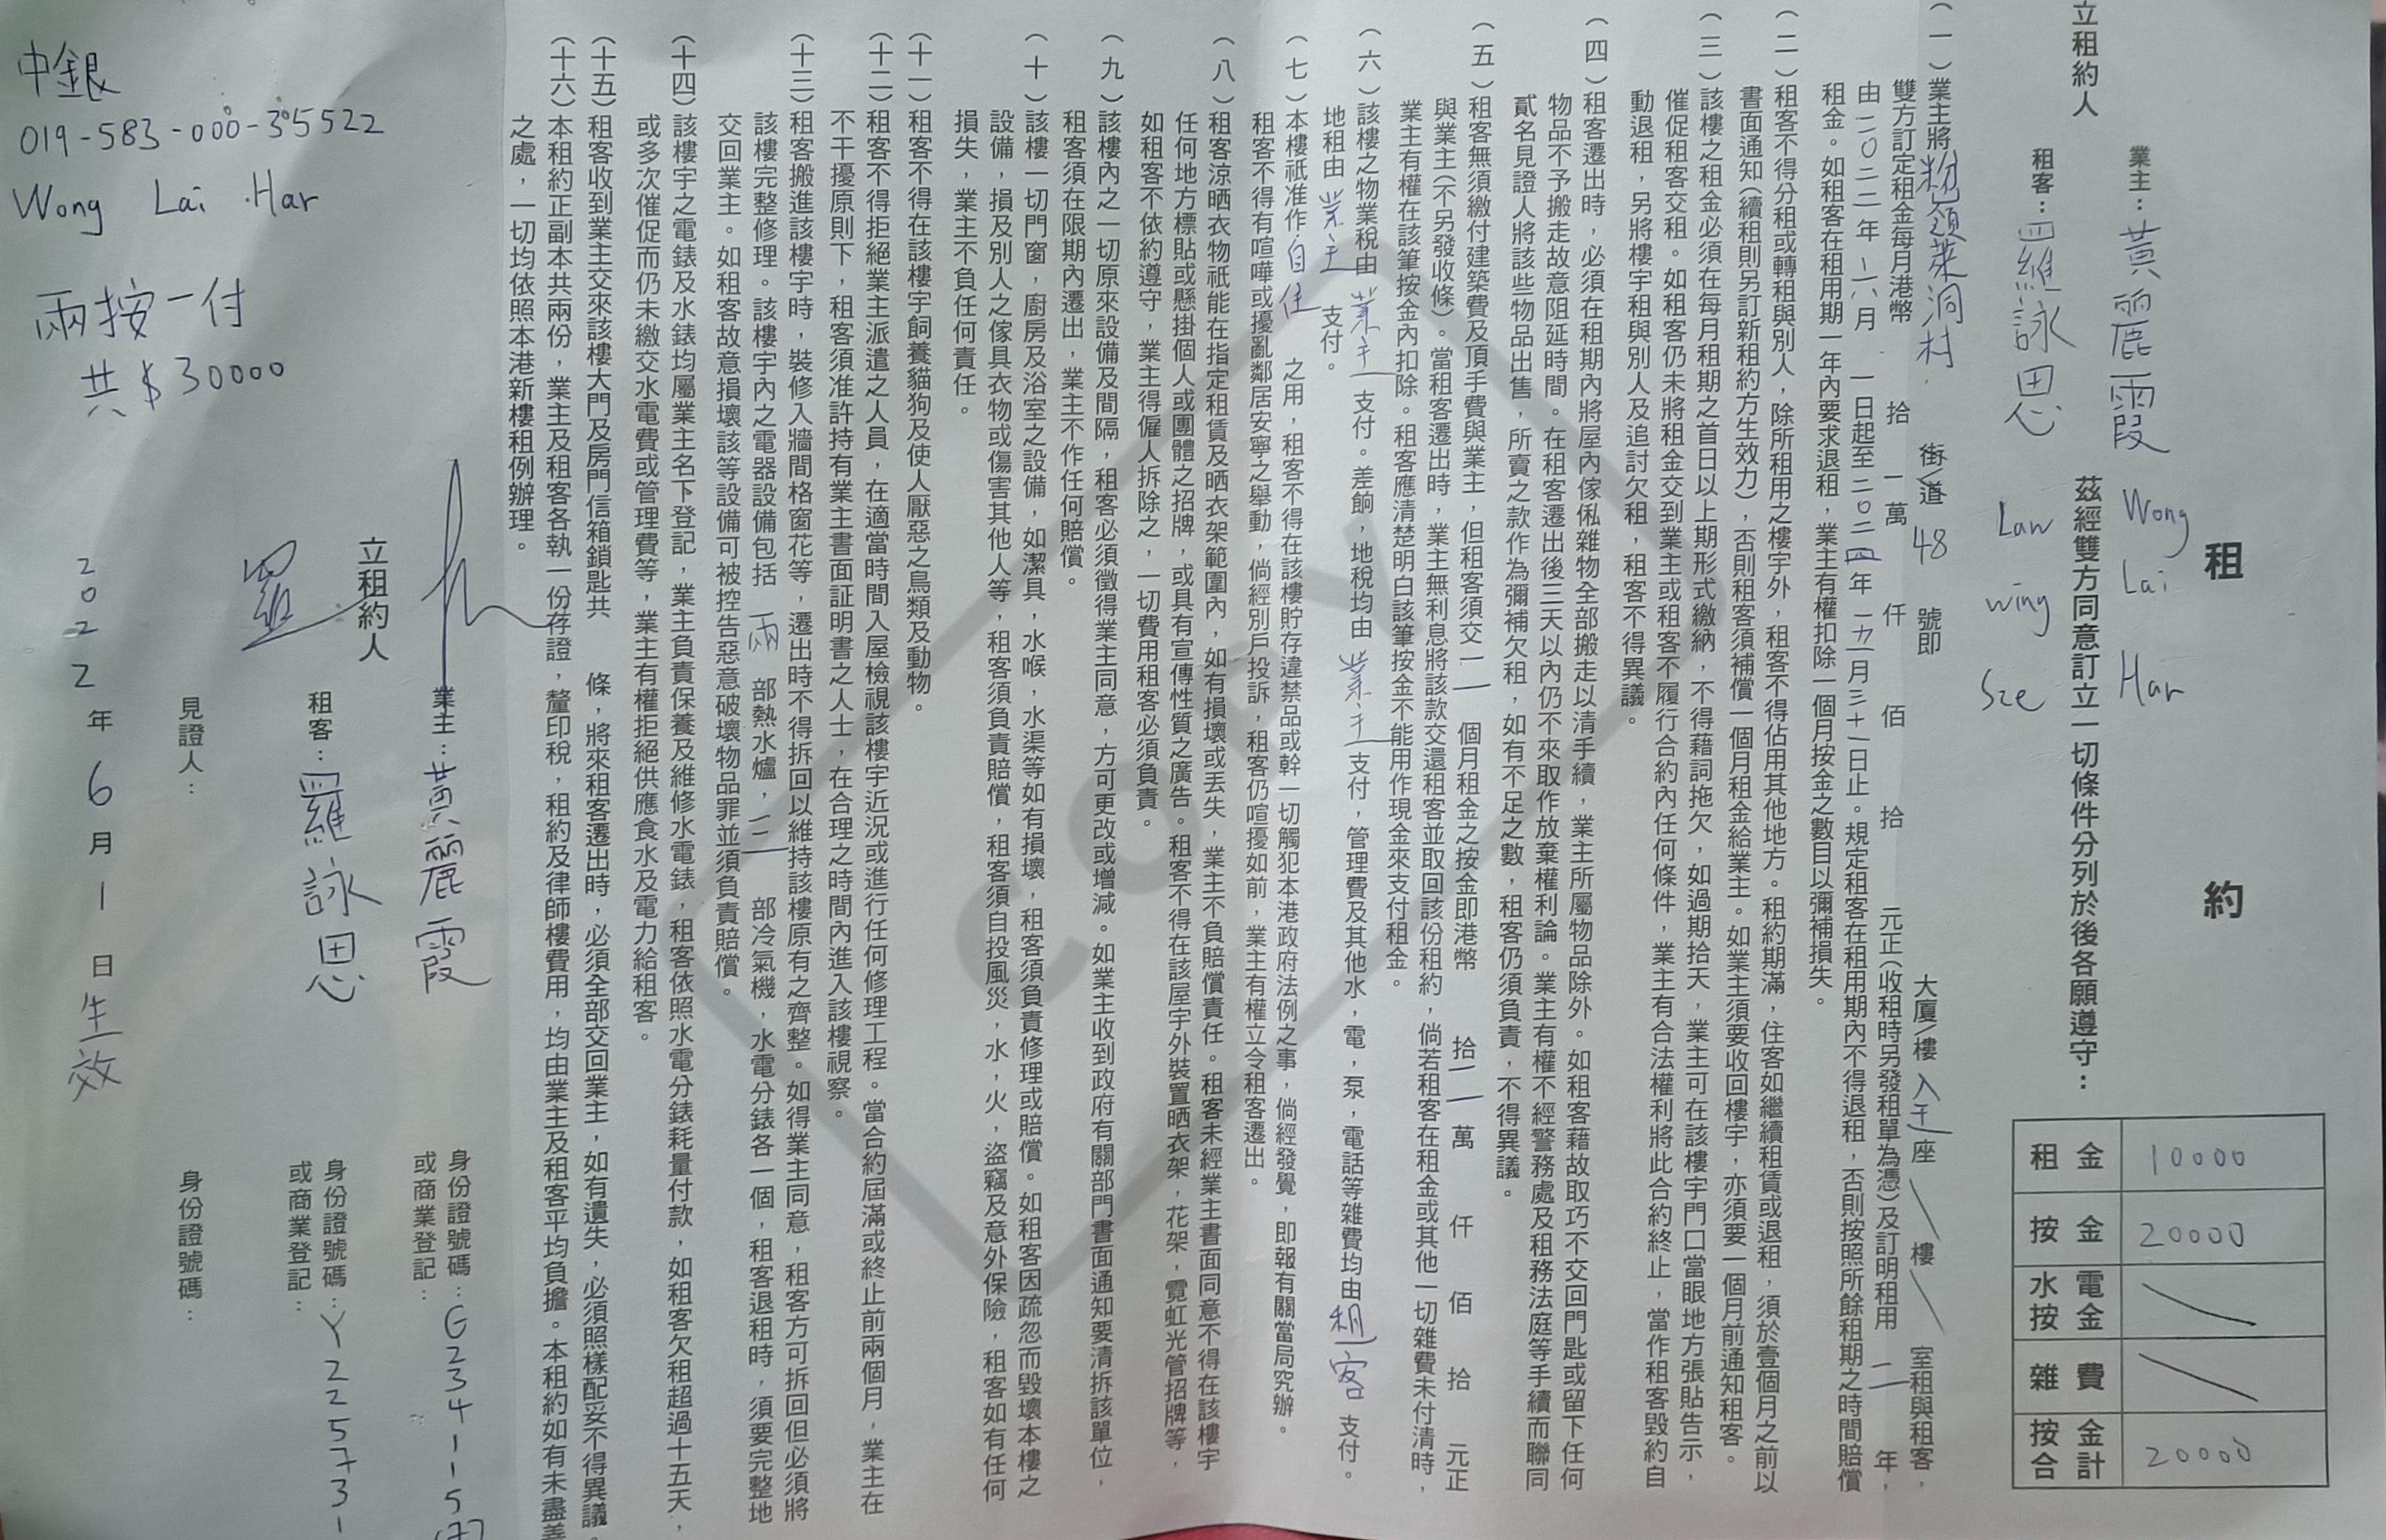 租約
立租約人
業主：黃麗霞 Wong Lai Har
租客：羅詠思 Law Wing Sze
茲經雙方同意訂立一切條件分列於後各願遵守：
租金 10000
按金 20000
水電按金
雜費
按金合計 20000
（一）業主將粉嶺萊洞村 街/道 48 號即 大廈/樓 座 樓 室租與租客，
雙方訂定租金每月港幣 拾 一萬 仟 佰 拾 元正（收租時另發租單為憑）及訂明租用 二 年，
由二〇二二年 六月 一日起至二〇二四年 月三十一日止。規定租客在租用期內不得退租，否則按照所餘租期之時間賠償
租金。如租客在租用期一年內要求退租，業主有權扣除一個月按金之數目以彌補損失。
（二）租客不得分租或轉租與別人，除所租用之樓宇外，租客不得佔用其他地方。租約期滿，住客如繼續租賃或退租，須於壹個月之前以
書面通知（續租則另訂新租約方生效力），否則租客須補償一個月租金給業主。如業主須要收回樓宇，亦須要一個月前通知租客。
（三）該樓之租金必須在每月租期之首日以上期形式繳納，不得藉詞拖欠，如過期拾天，業主可在該樓宇門口當眼地方張貼告示，
催促租客交租。如租客仍未將租金交到業主或租客不履行合約內任何條件，業主有合法權利將此合約終止，當作租客毀約自
動退租，另將樓宇租與別人及追討欠租，租客不得異議。
（四）租客遷出時，必須在租期內將屋內傢俬雜物全部搬走以清手續，業主所屬物品除外。如租客藉故取巧不交回門匙或留下任何
物品不予搬走故意阻延時間。在租客遷出後三天以內仍不來取作放棄權利論。業主有權不經警務處及租務法庭等手續而聯同
貳名見證人將該些物品出售，所賣之款作為彌補欠租，如有不足之數，租客仍須負責，不得異議。
（五）租客無須繳付建築費及頂手費與業主，但租客須交 二 個月租金之按金即港幣 拾 二 萬 仟 佰 拾 元正
與業主（不另發收條）。當租客遷出時，業主無利息將該款交還租客並取回該份租約，倘若租客在租金或其他一切雜費未付清時，
業主有權在該筆按金內扣除。租客應清楚明白該筆按金不能用作現金來支付租金。
（六）該樓之物業稅由 業主 支付。差餉，地稅均由 業主 支付，管理費及其他水，電，泵，電話等雜費均由 租客 支付。
地租由 業主 支付。
（七）本樓祇准作 自住 之用，租客不得在該樓貯存違禁品或幹一切觸犯本港政府法例之事，倘經發覺，即報有關當局究辦。
租客不得有喧嘩或擾亂鄰居安寧之舉動，倘經別戶投訴，租客仍喧擾如前，業主有權立令租客遷出。
（八）租客涼晒衣物祇能在指定租賃及晒衣架範圍內，如有損壞或丟失，業主不負賠償責任。租客未經業主書面同意不得在該樓宇
任何地方標貼或懸掛個人或團體之招牌，或具有宣傳性質之廣告。租客不得在該屋宇外裝置晒衣架，花架，霓虹光管招牌等，
如租客不依約遵守，業主得僱人拆除之，一切費用租客必須負責。
（九）該樓內之一切原來設備及間隔，租客必須徵得業主同意，方可更改或增減。如業主收到政府有關部門書面通知要清拆該單位，
租客須在限期內遷出，業主不作任何賠償。
（十）該樓一切門窗，廚房及浴室之設備，如潔具，水喉，水渠等如有損壞，租客須負責修理或賠償。如租客因疏忽而毀壞本樓之
設備，損及別人之傢具衣物或傷害其他人等，租客須負責賠償，租客須自投風災，水，火，盜竊及意外保險，租客如有任何
損失，業主不負任何責任。
（十一）租客不得在該樓宇飼養貓狗及使人厭惡之鳥類及動物。
（十二）租客不得拒絕業主派遣之人員，在適當時間入屋檢視該樓宇近況或進行任何修理工程。當合約屆滿或終止前兩個月，業主在
不干擾原則下，租客須准許持有業主書面証明書之人士，在合理之時間內進入該樓視察。
（十三）租客搬進該樓宇時，裝修入牆間格窗花等，遷出時不得拆回以維持該樓原有之齊整。如得業主同意，租客方可拆回但必須將
該樓完整修理。該樓宇內之電器設備包括 兩 部熱水爐，三 部冷氣機，水電分錶各一個，租客退租時，須要完整地
交回業主。如租客故意損壞該等設備可被控告惡意破壞物品罪並須負責賠償。
（十四）該樓宇之電錶及水錶均屬業主名下登記，業主負責保養及維修水電錶，租客依照水電分錶耗量付款，如租客欠租超過十五天，
或多次催促而仍未繳交水電費或管理費等，業主有權拒絕供應食水及電力給租客。
（十五）租客收到業主交來該樓大門及房門信箱鎖匙共 條，將來租客遷出時，必須全部交回業主，如有遺失，必須照樣配妥不得異議。
（十六）本租約正副本共兩份，業主及租客各執一份存證，釐印稅，租約及律師樓費用，均由業主及租客平均負擔。本租約如有未盡善
之處，一切均依照本港新樓租例辦理。
COPY
立租約人
業主：黃麗霞
身份證號碼：G234115(7)
或商業登記：
羅
租客：羅詠思
身份證號碼：Y225731
或商業登記：
見證人：
身份證號碼：
2022年6月1日生效
中銀
019-583-000-35522
Wong Lai Har
兩按一付
共$30000